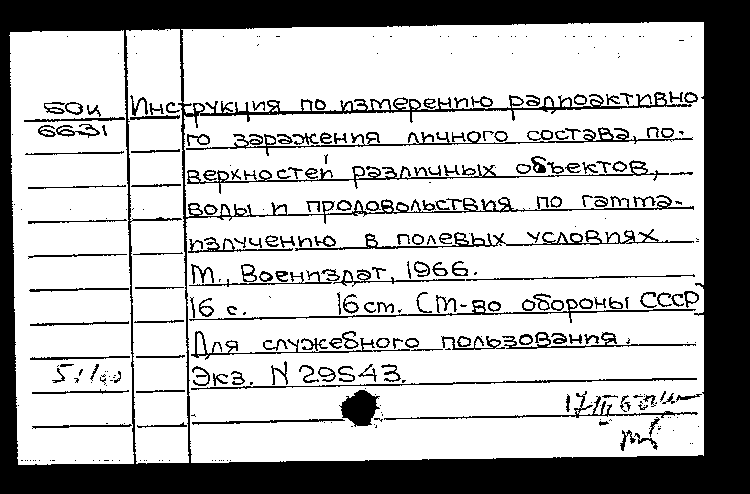 60и Инструкция по измерению радиоактивно-
6631 го заражения личного состава, по-
верхностей различных объектов,
воды и продовольствия по гамма-
излучению в полевых условиях
М., Воениздат, 1966.
16 с. 16 ст. (М-во обороны СССР)
Для служебного пользования.
Экз. N 29543.
17 III